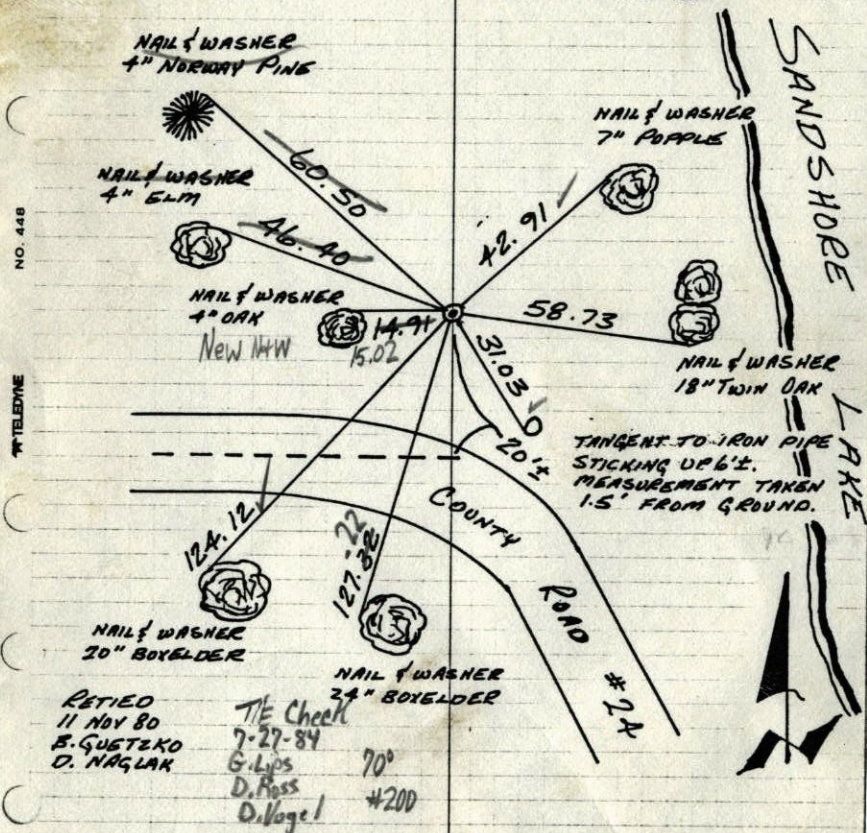 NAIL & WASHER
4" NORWAY PINE
60.50
NAIL & WASHER
4" ELM
46.40
NAIL & WASHER
4" OAK
New N+W
14.91
15.02
NAIL & WASHER
7" POPPLE
42.91
58.73
NAIL & WASHER
18" TWIN OAK
31.03
20'±
TANGENT TO IRON PIPE
STICKING UP 6'±.
MEASUREMENT TAKEN
1.5' FROM GROUND.
SANDSHORE
LAKE
COUNTY
ROAD
#24
124.12
NAIL & WASHER
20" BOXELDER
.22
127.32
NAIL & WASHER
24" BOXELDER
RETIED
11 NOV 80
B. GUETZKO
D. NAGLAK
TIE Check
7-27-84
G. Lips
D. Ross
D. Vogel
70°
#200
NO. 448
TELEDYNE